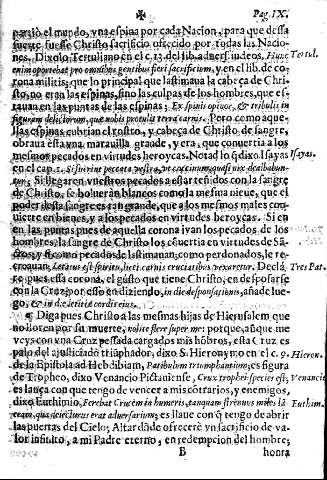 Pag. IX.
partiò el mundo, y na espina por cada Nacion, para que dessa
suerte fuesse Christo sacrificio ofrecido por todas las Nacio-
nes. Dixolo Tertuliano en el c. 13 del lib. advers. iudeos, Hunc Tertul.
enim oportebat pro omnibus gentibus fieri sacrificium, y en el lib. de co-
rona militis, que lo principal que lastimava la cabeça de Chris-
to, no eran las espinas, sino las culpas de los hombres, que es-
tavan en las puntas de las espinas; Ex spinis opinor, & tribulis in
figuram delictorum, quæ nobis protulit terra carnis. Pero como aque-
llas espinas cubrian el rostro, y cabeça de Christo de sangre,
obrava esta vna maravilla grande, y era, que convertia a los
mesmos pecados en virtudes heroycas. Notad lo q̃ dixo Isayas Isayas.
en el cap. 1. Si fuerint peccata vestra, ut coccinum, quasi nix dealbabun-
tur; Si llegaren vuestros pecados a estar teñidos con la sangre
de Christo, se bolverán blancos como la mesma nieve, que el
poder desta sangre es tan grande, que a los mesmos males con-
vierte en bienes, y a los pecados en virtudes heroycas. Si en
en las puntas pues de aquella corona ivan los pecados de los
hombres, la sangre de Christo los convertia en virtudes de Sã-
tos; y si como pecados le lastimavan; como perdonados, le re-
creavan, Lætatus est spiritu, licet carnis cruciatibus vexaretur. Declá- Tres Pat.
rò pues esta corona, el gusto que tiene Christo, en desposarse
con la Cruz, por esso en diziendo, in die desponsationis, añade lue-
go, & in die lætitiæ cordis eius.
¶ Diga pues Christo a las mesmas hijas de Hierusalem que
no lloren por su muerte, nolite flere super me: porque, aũque me
veys con vna Cruz pesada cargados mis hõbros, esta Cruz es
palo del ajusticiado triũphador, dixo S. Hieronymo en el c. 9. Hieron.
de la Epistola ad Hebdibiam, Patibulum triumphantium, es figura
de Tropheo, dixo Venancio Pictaviense, Crux trophei species est, Venancio
es lança con que tengo de vencer a mis cõtrarios, y enemigos,
dixo Euthimio, Ferebat Crucem in humeris, tanquam strenuus miles lã- Euthim.
ceam, qua deiecturus erat adversarium; es llave con q̃ tengo de abrir
las puertas del Cielo; Altar dõde ofrecerè vn sacrificio de va-
lor infinito, a mi Padre eterno, en redempcion del hombre;
B honra